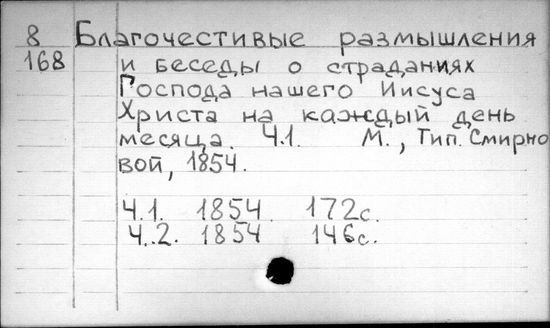 8 Благочестивые размышления
168 и беседы о страданиях
Господа нашего Иисуса
Христа на каждый день
месяца. Ч.1. М., Тип. Смирно
вой, 1854.
Ч.1. 1854. 172с.
Ч.2. 1854 146с.